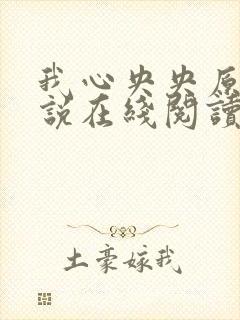 我心央央原
說在綫閱讀
土豪嫁我